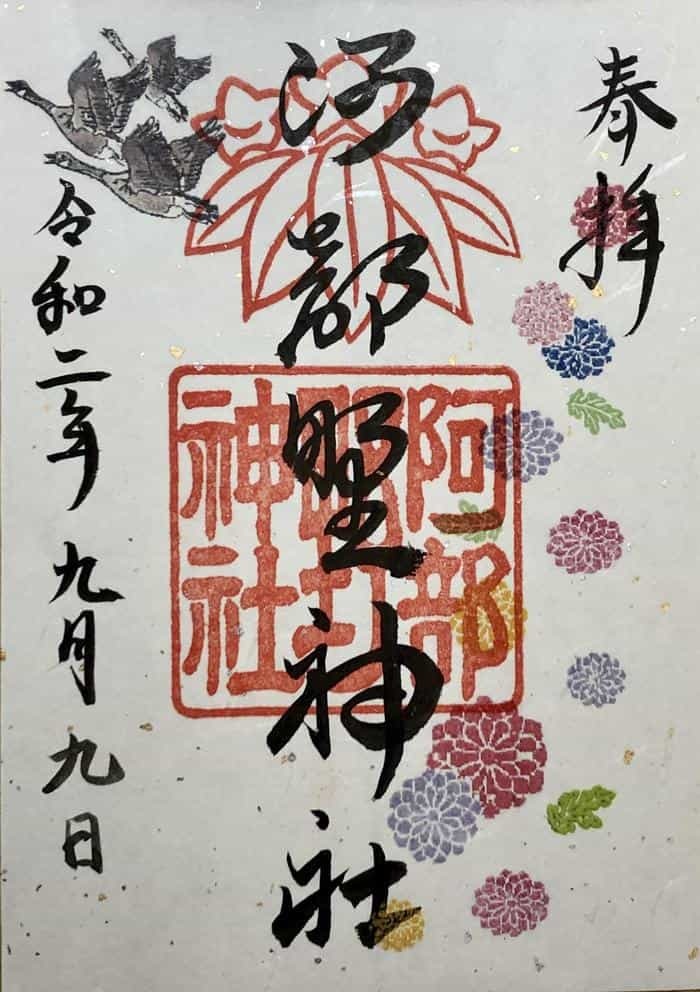 奉拝
阿部野神社
阿部
野
神社
令和二年九月九日